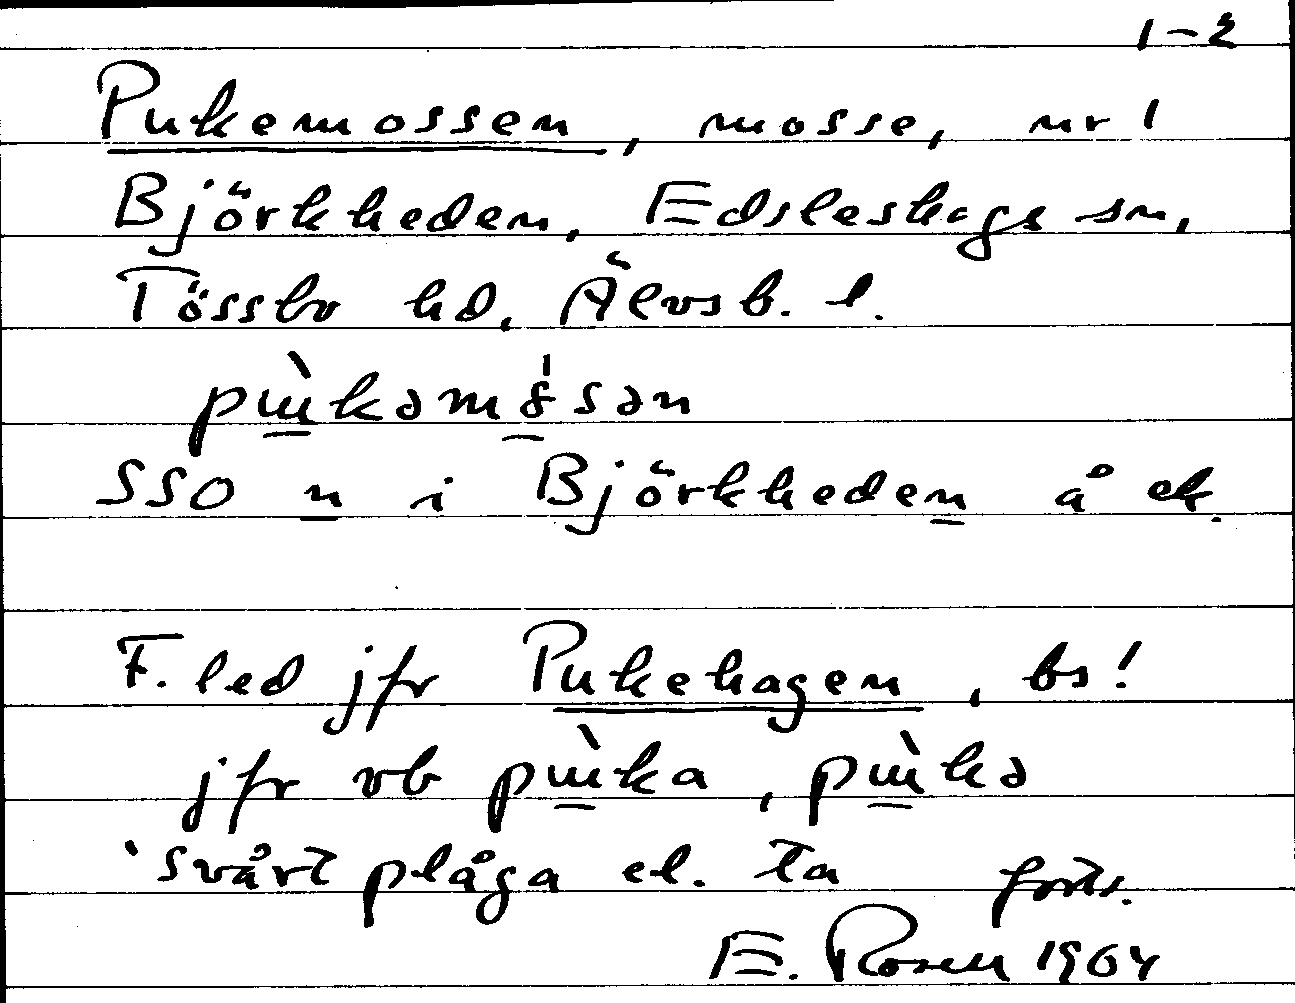 1-2
Pukemossen, mosse, nr 1
Björkheden, Edsleskogs sn,
Tössbo hd, Älvsb. l.
SSO n i Björkheden å ek.
F. led jfr Pukehagen, bs!
jfr vb pɯ̀ka, pɯ̀kə
'svårt plåga el. ta forts.
E. Rosell 1964